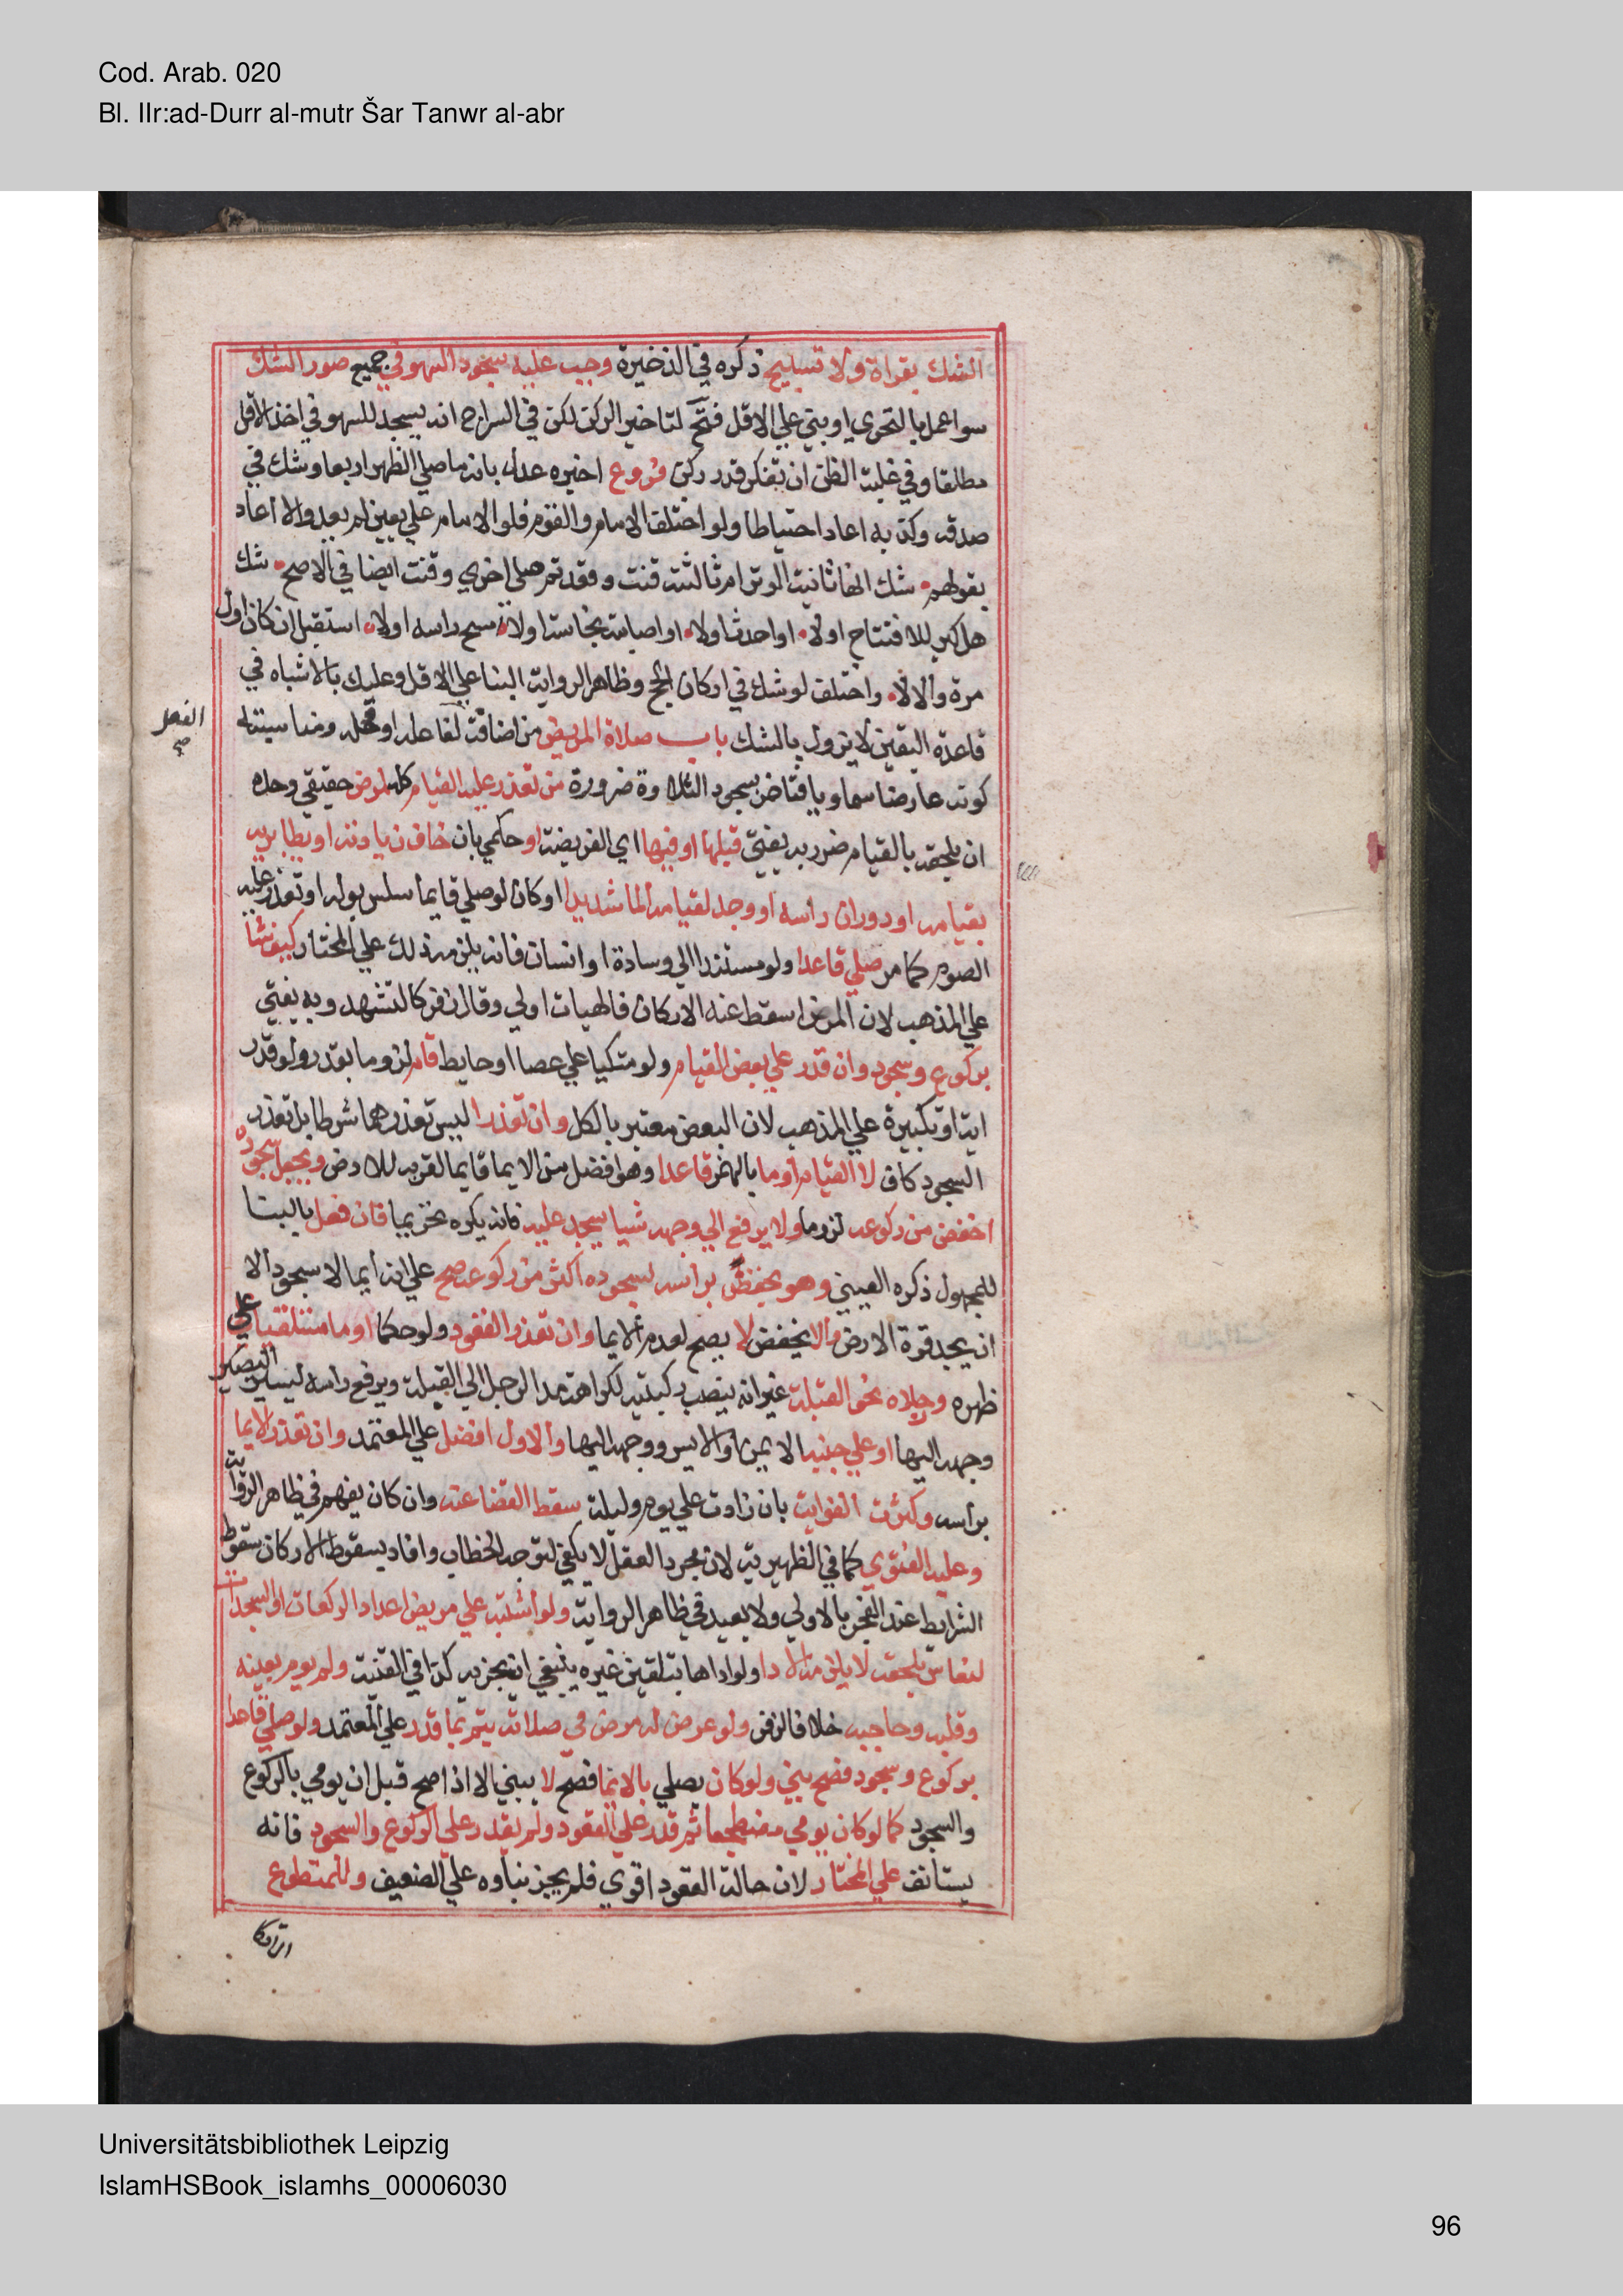 Cod. Arab. 020
Bl. IIr:ad-Durr al-mutr Šar Tanwr al-abr
الشك بقراة ولا تسبيح ذكره في الذخيرة وجب عليه سجود السهو في جميع صور الشك
سوا عمل بالتحري او بني علي الاقل فتح لتاخير الركن لكن في السراج انه يسجد للسهو في اخذ الاقل
مطلقا وفي غلبة الظن ان تفكر قدر ركن فروع اخبره عدل بانه ما صلي الظهر اربعا وشك في
صدقه وكذبه اعاد احتياطا ولو اختلف الامام والقوم فلو الامام علي يقين لم يعد والا اعاد
بقولهم شك انها ثانية الوتر ام ثالثته قنت وقعد ثم صلي اخري وقنت ايضا في الاصح شك
هل كبر للافتتاح اولا او احدث اولا او اصابته نجاسة اولا مسح راسه اولا استقبل ان كان اول
مرة والا لا واختلف لو شك في اركان الحج وظاهر الرواية البنا علي الاقل وعليك بالاشباه في
قاعدة اليقين لا يزول بالشك باب صلاة المريض من اضافة لفاعله او محله ومناسبته
الفعل
صح
كونه عارضا سماويا فتاخر سجود التلاوة ضرورة من تعذر عليه القيام كله لمرض حقيقي وحده
ان يلحقه بالقيام ضرر به يفتي قبلها او فيها اي الفريضة او حكمي بان خاف زيادته او بطا برئه
بقيامه او دوران راسه او وجد لقيامه الما شديدا او كان لو صلي قايما سلس بوله او تعذر عليه
الصوم كما مر صلي قاعدا ولو مستندا الي وسادة او انسان فانه يلزمه ذلك علي المختار كيف شا
علي المذهب لان المرض اسقط عنه الاركان فالهيات اولي وقال زفر كالتشهد وبه يفتي
بركوع وسجود وان قدر علي بعض القيام ولو متكيا علي عصا او حايط قام لزوما بقدر ولو قدر
اية او تكبيرة علي المذهب لان البعض معتبر بالكل وان تعذرا ليس تعذرهما شرطا بل تعذر
السجود كاف لا القيام اوما بالهمز قاعدا وهو افضل من الايما قايما لقربه للارض ويجعل سجوده
اخفض من ركوعه لزوما ولا يرفع الي وجهه شيا يسجد عليه فانه يكره تحريما فان فعل بالبنا
للمجهول ذكره العيني وهو يخفض براسه لسجوده اكثر من ركوعه صح علي انه ايما لا سجود الا
ان يجد قوة الارض والا يخفض لا يصح لعدم الايما وان تعذر القعود ولو حكما اوما مستلقيا علي
ظهره ورجلاه نحو القبلة غير انه ينصب ركبتيه لكراهة مد الرجل الي القبلة ويرفع راسه يسيرا ليصير
وجهه اليها او علي جنبه الايمن او الايسر ووجهه اليها والاول افضل علي المعتمد وان تعذر الايما
براسه وكثرت الفوايت بان زادت علي يوم وليلة سقط القضا عنه وان كان يفهم في ظاهر الرواية
وعليه الفتوي كما في الظهيرية لان مجرد العقل لا يكفي لتوجه الخطاب وافاد بسقوط الاركان سقوط
الشرايط عند العجز بالاولي ولا يعيد في ظاهر الرواية ولو اشتبه علي مريض اعداد الركعات او السجدات
لنعاس يلحقه لا يلزمه الادا ولو اداها بتلقين غيره ينبغي ان يجزيه كذا في القنية ولم يوم بعينه
وقلبه وحاجبه خلافا لزفر ولو عرض له مرض في صلاته يتم بما قدر علي المعتمد ولو صلي قاعدا
بركوع وسجود فصح بني ولو كان يصلي بالايما فصح لا يبني الا اذا صح قبل ان يومي بالركوع
والسجود كما لو كان يومي مضطجعا ثم قدر علي القعود ولم يقدر علي الركوع والسجود فانه
يستانف علي المختار لان حالة القعود اقوي فلم يجز بناوه علي الضعيف وللمتطوع
الاتكا
Universitätsbibliothek Leipzig
IslamHSBook_islamhs_00006030
96